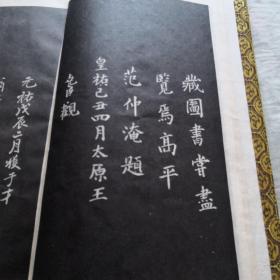 藏圖書嘗盡
覽焉高平
范仲淹題
皇祐己丑四月太原王
觀
元祐戊辰二月